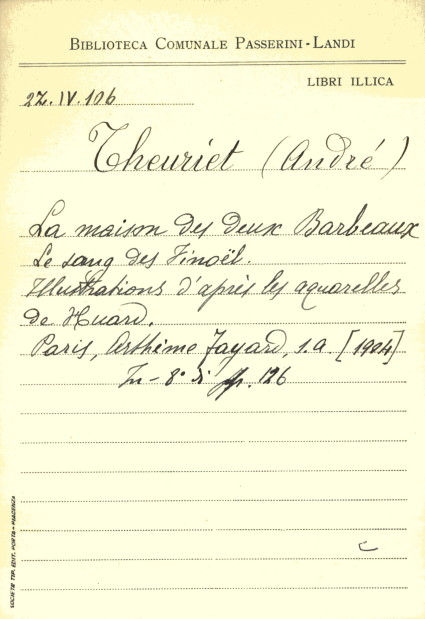 BIBLIOTECA COMUNALE PASSERINI-LANDI
LIBRI ILLICA
2Z.IV.106
Theuriet (André)
La maison des deux Barbeaux
Le sang des Finoël.
Illustrations d'après les aquarelles
de Huard.
Paris, Arthème Fayard, s.a. [1904]
In-8° di pp. 126
c
SOCIETÀ TIP. EDIT. PORTA - PIACENZA